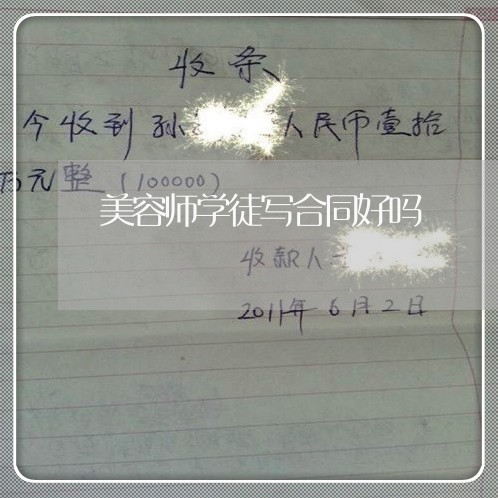 收条
今收到孙 人民币壹拾
万元整（100000）
美容师学徒写合同好吗
收款人
2011年6月2日